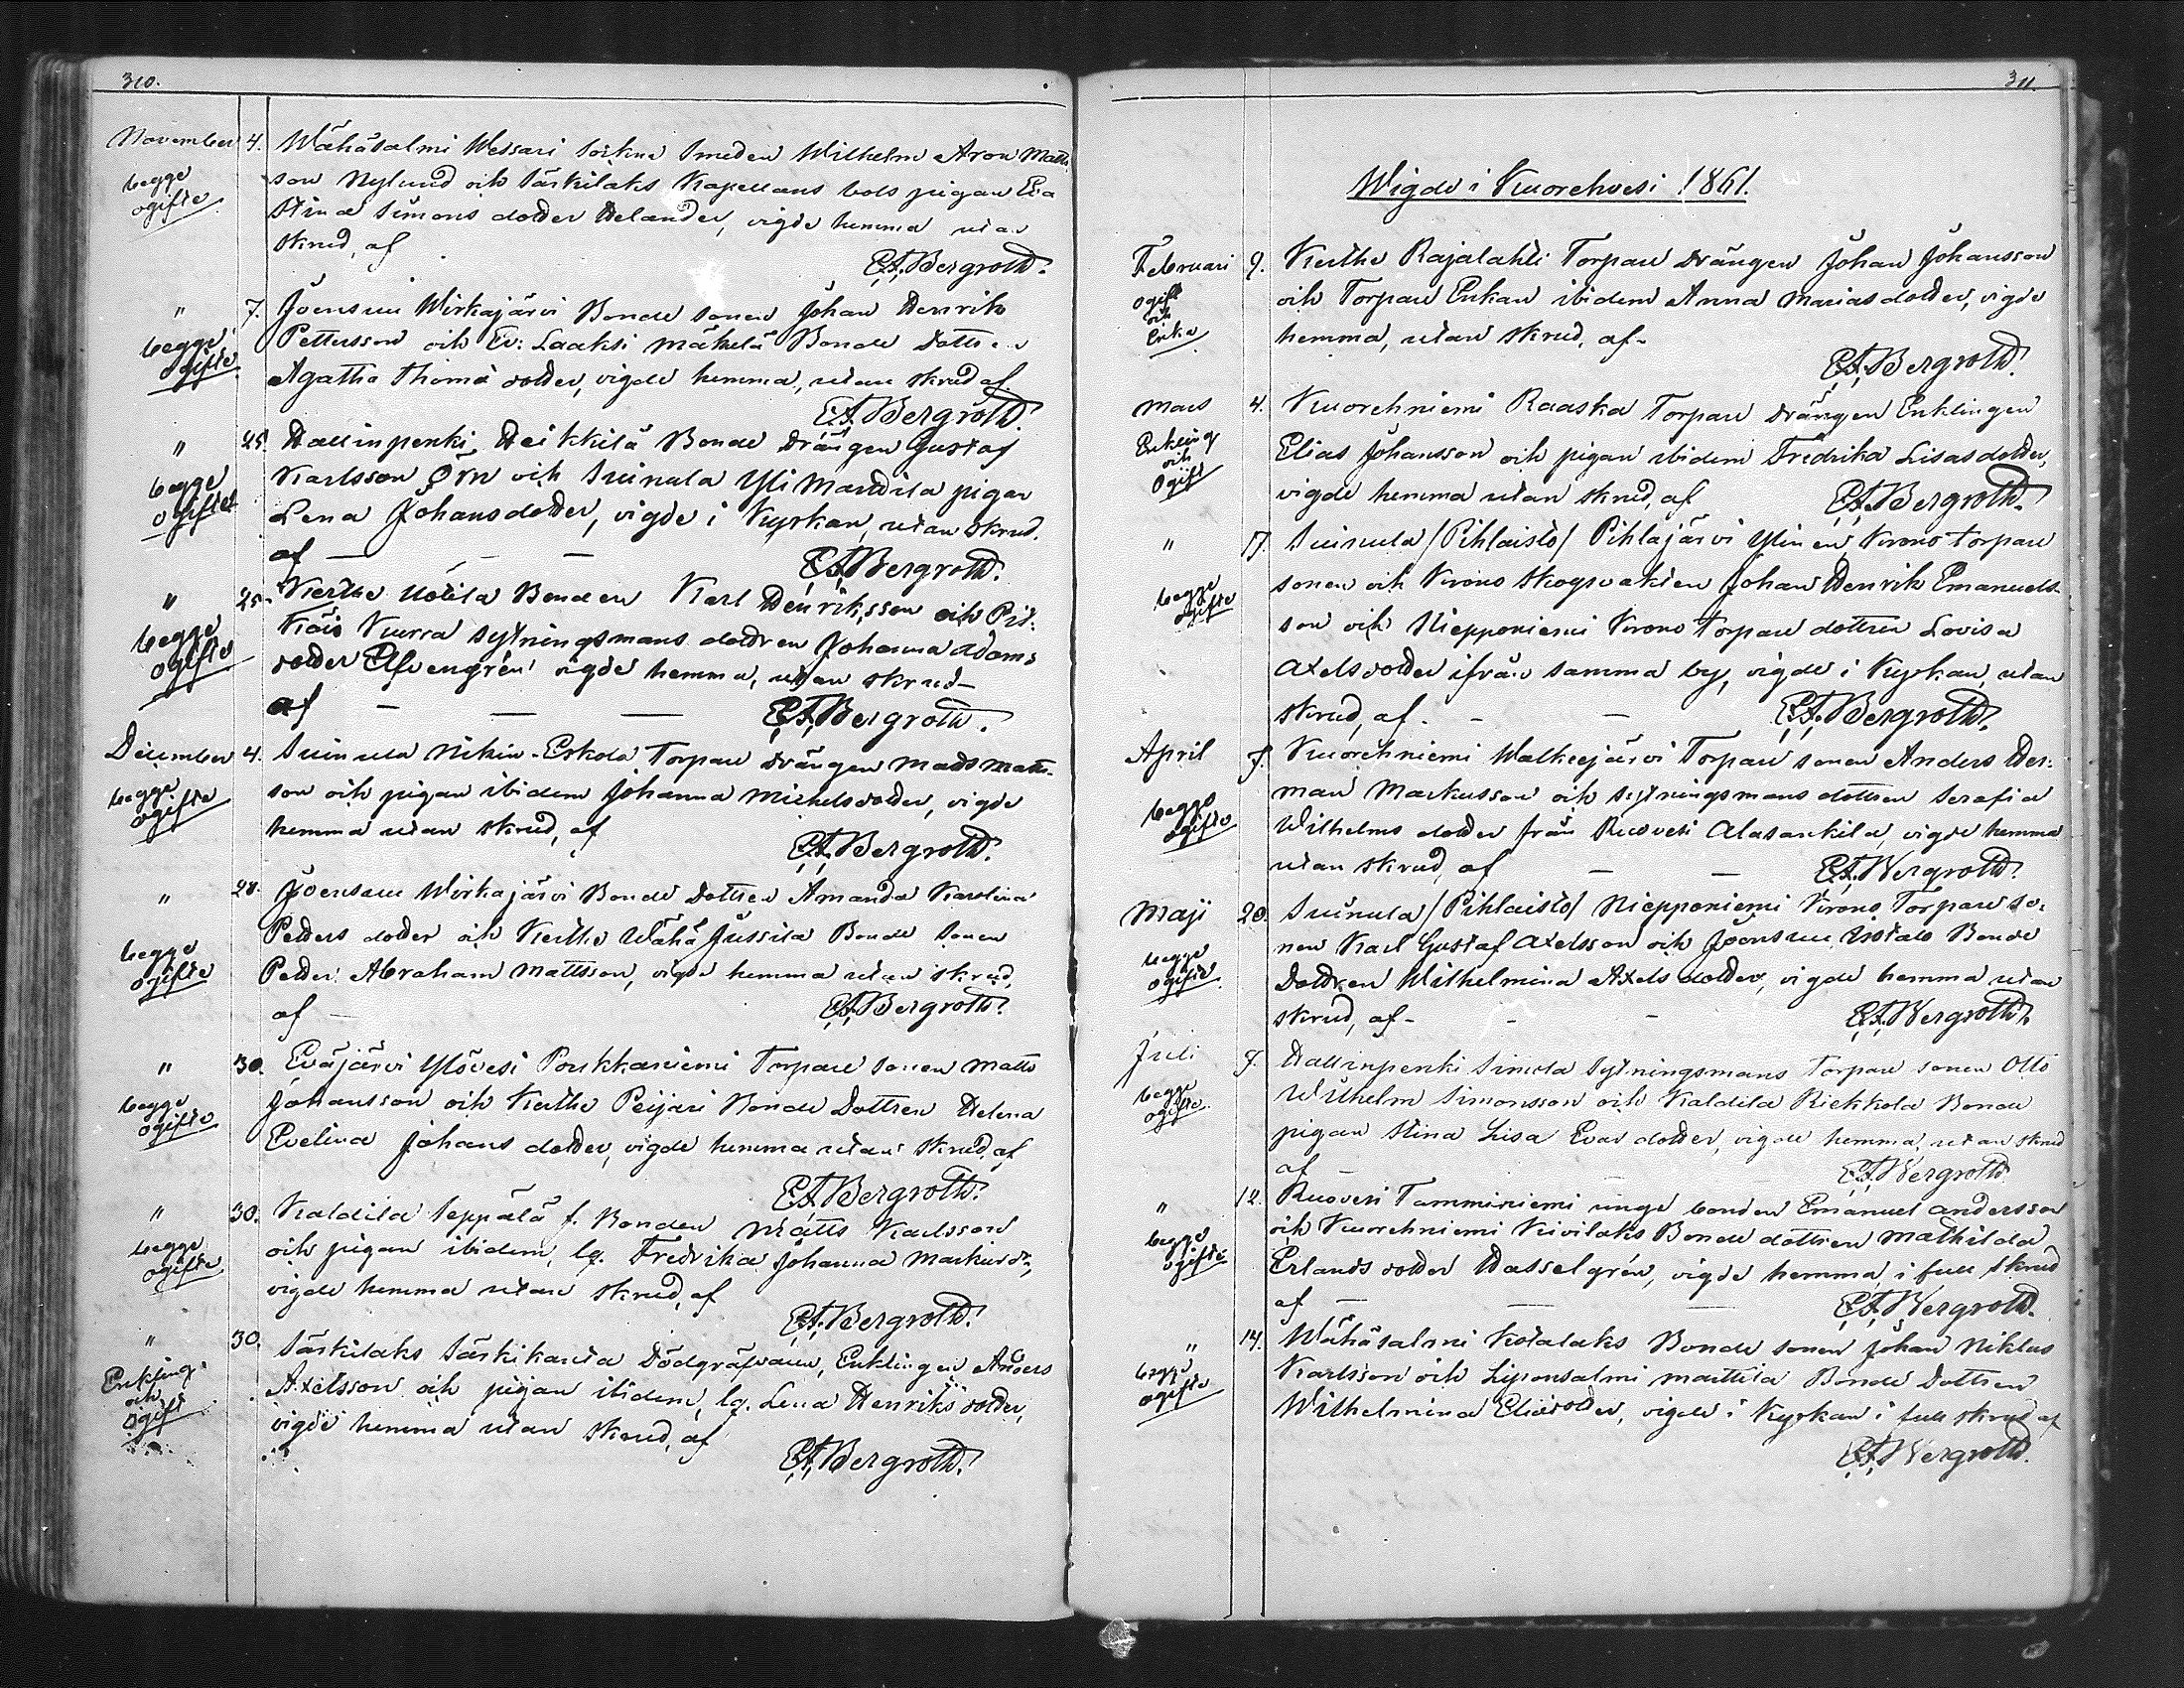 310.
November 4. Wähäsalmi Wessari Sockne Smeden Wilhelm Aron Matts
begge ogifte
son Nylund och Särkilaks Kapellans bols pigan Eva
Stina Simons dotter Helander, vigde hemma utan
skrud, af
E.A. Bergroth.
" 7. Joensuu Wirkajärvi Bonde sonen Johan Henrik
begge ogifte
Pettersson och Ev: Laaksi Mäkelä Bonde Dottren
Agatha Thomæ dotter, vigde hemma, utan skrud af
E.A. Bergroth.
" 25. Hallinpenki Heikkilä Bonde Drängen Gustaf
begge ogifte
Karlsson Örn och Suinula Yli Mardila pigan
Lena Johans dotter, vigde i Kyrkan, utan skrud.
af — — —
E.A. Bergroth.
" 25. Kertke Uotila Bonden Karl Henriksson och Pit-
begge ogifte
käis Kurra sytningsmans dottren Johanna Adams
dotter Elfvengrén vigde hemma, utan skrud
af — — —
E.A. Bergroth.
December 4. Suinula Nikin-Eskola Torpare drängen Mads Matts-
begge ogifte
son och pigan ibidem Johanna Michelsdotter, vigde
hemma utan skrud, af
E.A. Bergroth.
" 28. Joensuu Wirkajärvi Bonde Dottren Amanda Karolina
begge ogifte
Petters dotter och Kertke Wähä Jussila Bonde Sonen
Petter Abraham Mattsson, vigde hemma utan skrud,
af —
E.A. Bergroth.
" 30. Eväjärvi Ylövesi Poukkaniemi Torpare sonen Matts
begge ogifte
Johansson och Kertke Peijari Bonde Dottren Helena
Evelina Johans dotter, vigde hemma utan skrud, af
E.A. Bergroth.
" 30. Kaldila Seppälä f. Bonden Matts Karlsson
begge ogifte
och pigan ibidem, lg. Fredrika Johanna Markusdr,
vigde hemma utan skrud, af
E.A. Bergroth.
" 30. Särkilaks Särkikanta Dödgräfvaren, Enklingen Anders
Enkling och ogift
Axelsson och pigan ibidem, lg. Lena Henriks dotter,
vigde hemma utan skrud, af
E.A. Bergroth.
311.
Wigde i Kuorehvesi 1861.
Februari 9. Kertke Rajalahti Torpare drängen Johan Johansson
ogift och Enka
och Torpare Enkan ibidem Anna Mariasdotter, vigde
hemma, utan skrud, af
E.A. Bergroth.
Mars 4. Kuorehniemi Raaska Torpare drängen Enklingen
Enkling och Ogift
Elias Johansson och pigan ibidem Fredrika Lisasdotter,
vigde hemma utan skrud, af
E.A. Bergroth.
" 17. Suinula /Pihlaisto/ Pihlajärvi Ylinen Krono torpare
begge ogifte
sonen och Krono skogvakten Johan Henrik Emanuels-
son och Niepponiemi Krono torpare dottren Lovisa
Axelsdotter ifrån samma by, vigde i Kyrkan, utan
skrud, af — —
E.A. Bergroth.
April 7. Kuorehniemi Walkeejärvi Torpare sonen Anders Her-
begge ogifte
man Markusson och sytningsmans dottren Serafia
Wilhelms dotter från Ruovesi Alasarkila, vigde hemma
utan skrud, af — —
E.A. Bergroth.
Maji 20. Suinula /Pihlaisto/ Niepponiemi Krono Torpare so-
begge ogifte
nen Karl Gustaf Axelsson och Joensuu Uotala Bonde
Dottren Wilhelmina Axels dotter, vigde hemma utan
skrud, af — — —
E.A. Bergroth.
Juli 7. Hallinpenki Simola Sytningsmans Torpare sonen Otto
begge ogifte
Wilhelm Simonsson och Kaldila Riekkola Bonde
pigan Stina Lisa Evas dotter, vigde hemma, utan skrud
af — — —
E.A. Bergroth
" 12. Ruovesi Tamminiemi unge bonden Emanuel Andersson
begge ogifte
och Kuorehniemi Kivilaks Bonde dottren Mathilda
Erlands dotter Hasselgrén, vigde hemma i full skrud
af — — —
E.A. Bergroth.
" 14. Wähäsalmi Kotalaks Bonde sonen Johan Niklas
begge ogifte
Karlsson och Liponsalmi Marttila Bonde Dottren
Wilhelmina Eliædotter, vigde i Kyrkan i full skrud af
E.A. Bergroth.